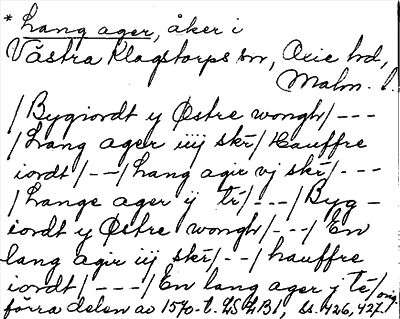 * Lang ager, åker i
Västra Klagstorps sn, Oxie hd,
Malm. l.
/Bygiordt y Østre wongh/---
/Lang ager iiij skr/ Hauffre
iordt/--/Lang agir vj skr/---
/Lange ager ij tr/---/Byg-
iordt y Østre wongh/---/En
lang agir iij skr/--/hauffre
iordt/---/En lang ager j tr/
förra delen av 1570-t. LSLB1, ss. 426, 427. orig.